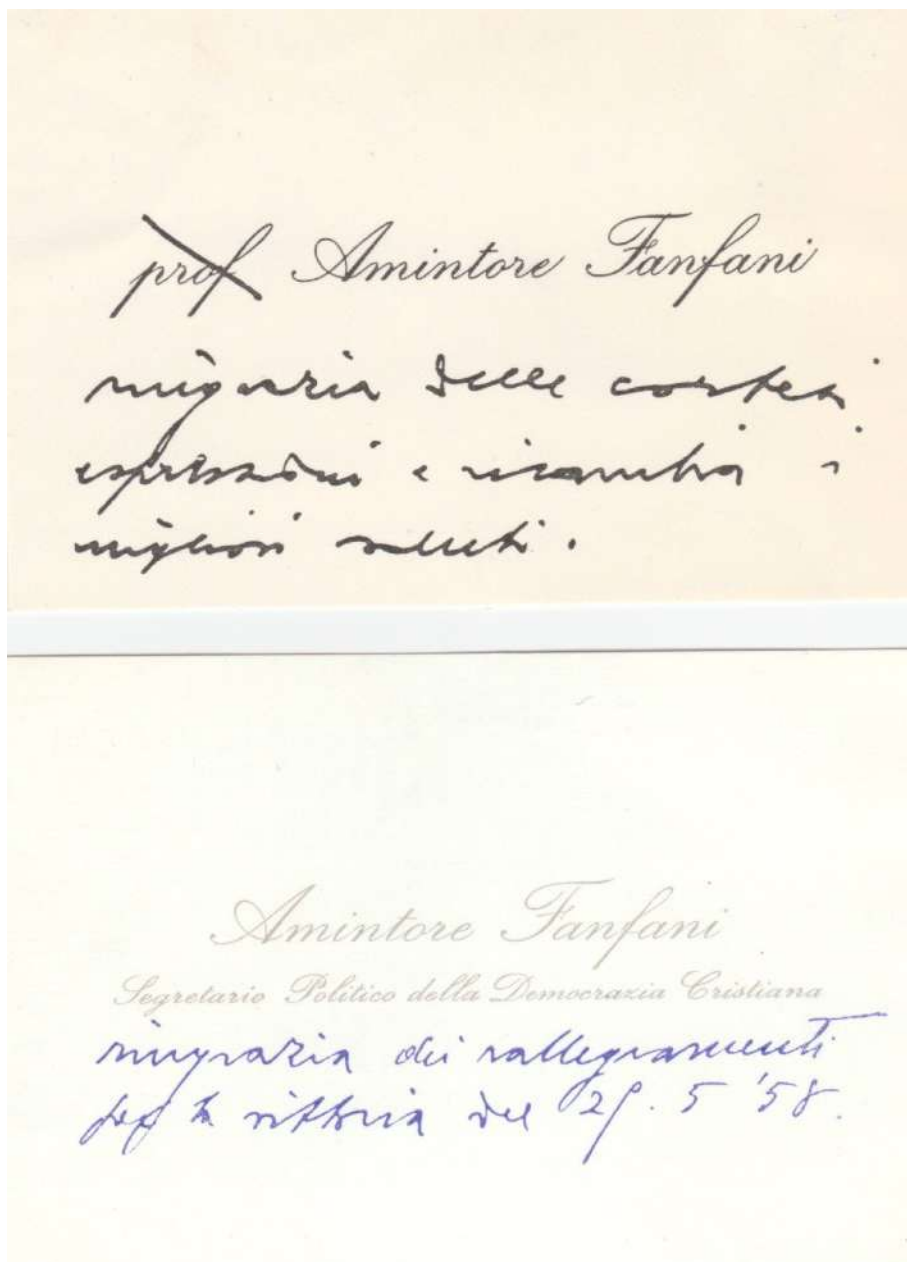 prof Amintore Fanfani
ringrazia delle cortesi
espressioni e ricambia i
migliori saluti.
Amintore Fanfani
Segretario Politico della Democrazia Cristiana
ringrazia dei rallegramenti
per la vittoria del 25. 5 '58.